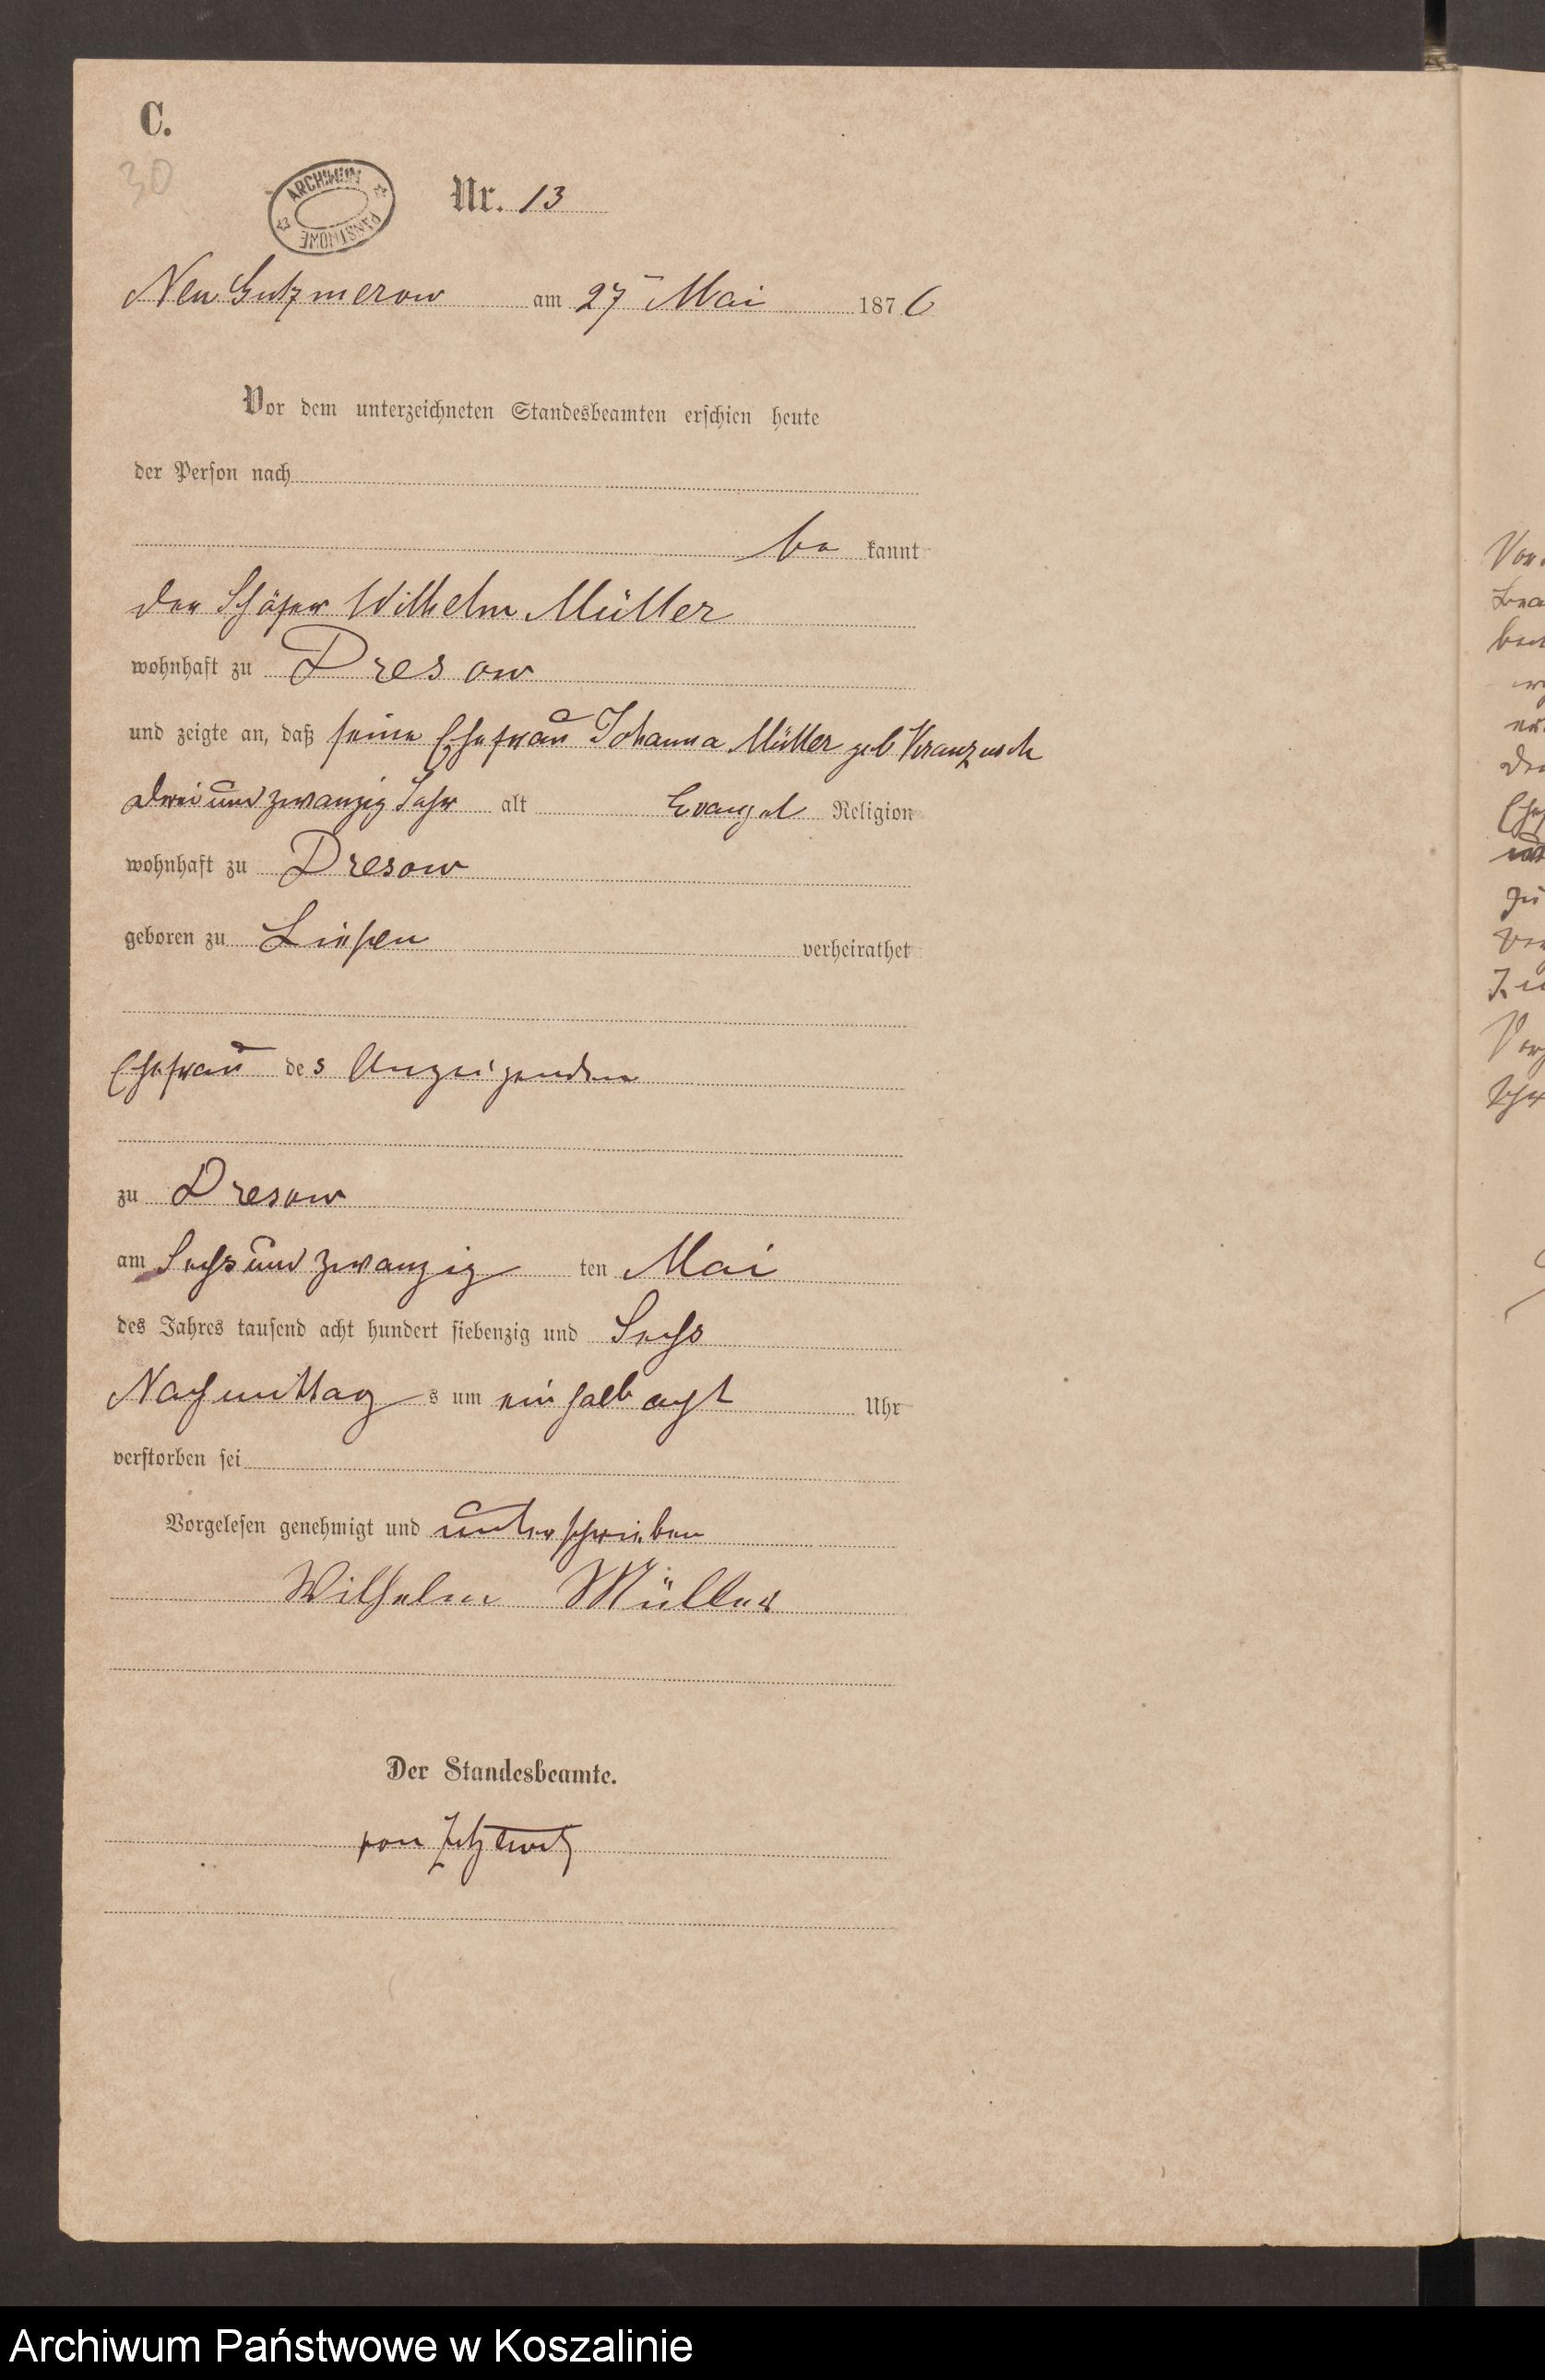 C.
30
ARCHIWUM PAŃSTWOWE
Nr. 13
Neu Gutzmerow am 27 Mai 1876
Vor dem unterzeichneten Standesbeamten erschien heute
der Person nach
be kannt
der Schäfer Wilhelm Müller
wohnhaft zu Dresow
und zeigte an, daß seine Ehefrau Johanna Müller geb
drei und zwanzig Jahr alt Evangel Religion
wohnhaft zu Dresow
geboren zu verheirathet
Ehefrau des Anzeigenden
zu Dresow
am Sechs und zwanzig ten Mai
des Jahres tausend acht hundert siebenzig und Sechs
Nachmittag s um ein halb acht Uhr
verstorben sei
Vorgelesen genehmigt und unterschrieben
Wilhelm Müller
Der Standesbeamte.
von
Archiwum Państwowe w Koszalinie